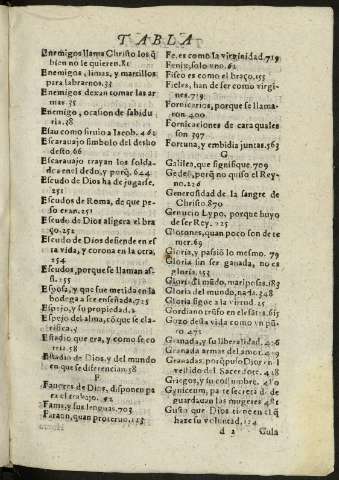 TABLA
Enemigos llama Christo los q̃
bien no le quieren.81
Enemigos, limas, y martillos
para labrarnos.33
Enemigos dexan tomar las ar
mas 35
Enemigo, ocasion de sabidu
ria.38
Esau como siruio a Iacob.462
Escarauajo simbolo del desho
nesto.66
Escarauajo trayan los solda-
dos en el dedo, y porq̃.644
Escudo de Dios ha de jugarse.
251
Escudos de Roma, de que pe-
so eran.251
Escudo de Dios aligera el bra
ço.251
Escudo de Dios defiende en es
ta vida, y corona en la otra,
254
Escudos, porque se llaman as-
si.155
Esposa, y que fue metida en la
bodega a ser enseñada,725
Espejo, y su propiedad.2
Espejo del alma, cõ que se cla-
rifica.7
Estadio que era, y como se co
rria.58
Estadio de Dios, y del mundo
en que se diferencian.58
F
Fauores de Dios, disponen pa
ra el trabajo.62
Fama, y sus lenguas.703
Faraon, quan proteruo.125
Fe, es como la virginidad.719
Fenix, solo vno.62
Fisco es como el braço.155
Fieles, han de ser como virgi-
nes.719.
Fornicarios, porque se llama-
ron 400
Fornicaciones de cara quales
son 397
Fortuna, y embidia juntas.563
G
Galilea, que signifique 709
Gedeõ, porq̃ no quiso el Rey-
no.226
Generosidad de la sangre de
Christo.870
Genucio Lypo, porque huyo
de ser Rey.225
Glotones, quan poco son de te
mer.69
Gloria, y passiõ lo mesmo. 79
Gloria sin ser ganada, no es
gloria.153
Gloria del mũdo, mariposa.183
Gloria del mundo, nada.348
Gloria sigue a la virtud.25
Gordiano trũfo en el fatis.615
Gozo desta vida como vn pu-
ro 471
Granada, y su liberalidad.496
Granada armas del amor.419
Granadas, porq̃ puso Dios en l
vestido del Sacerdote. 428
Griegos, y su costumbre. 410
Gyniceum, parte secreta dõ de
guardauan las mugeres 481
Gusto que Dios tiene en el q̃
haze su voluntad.124
d 2
Gula